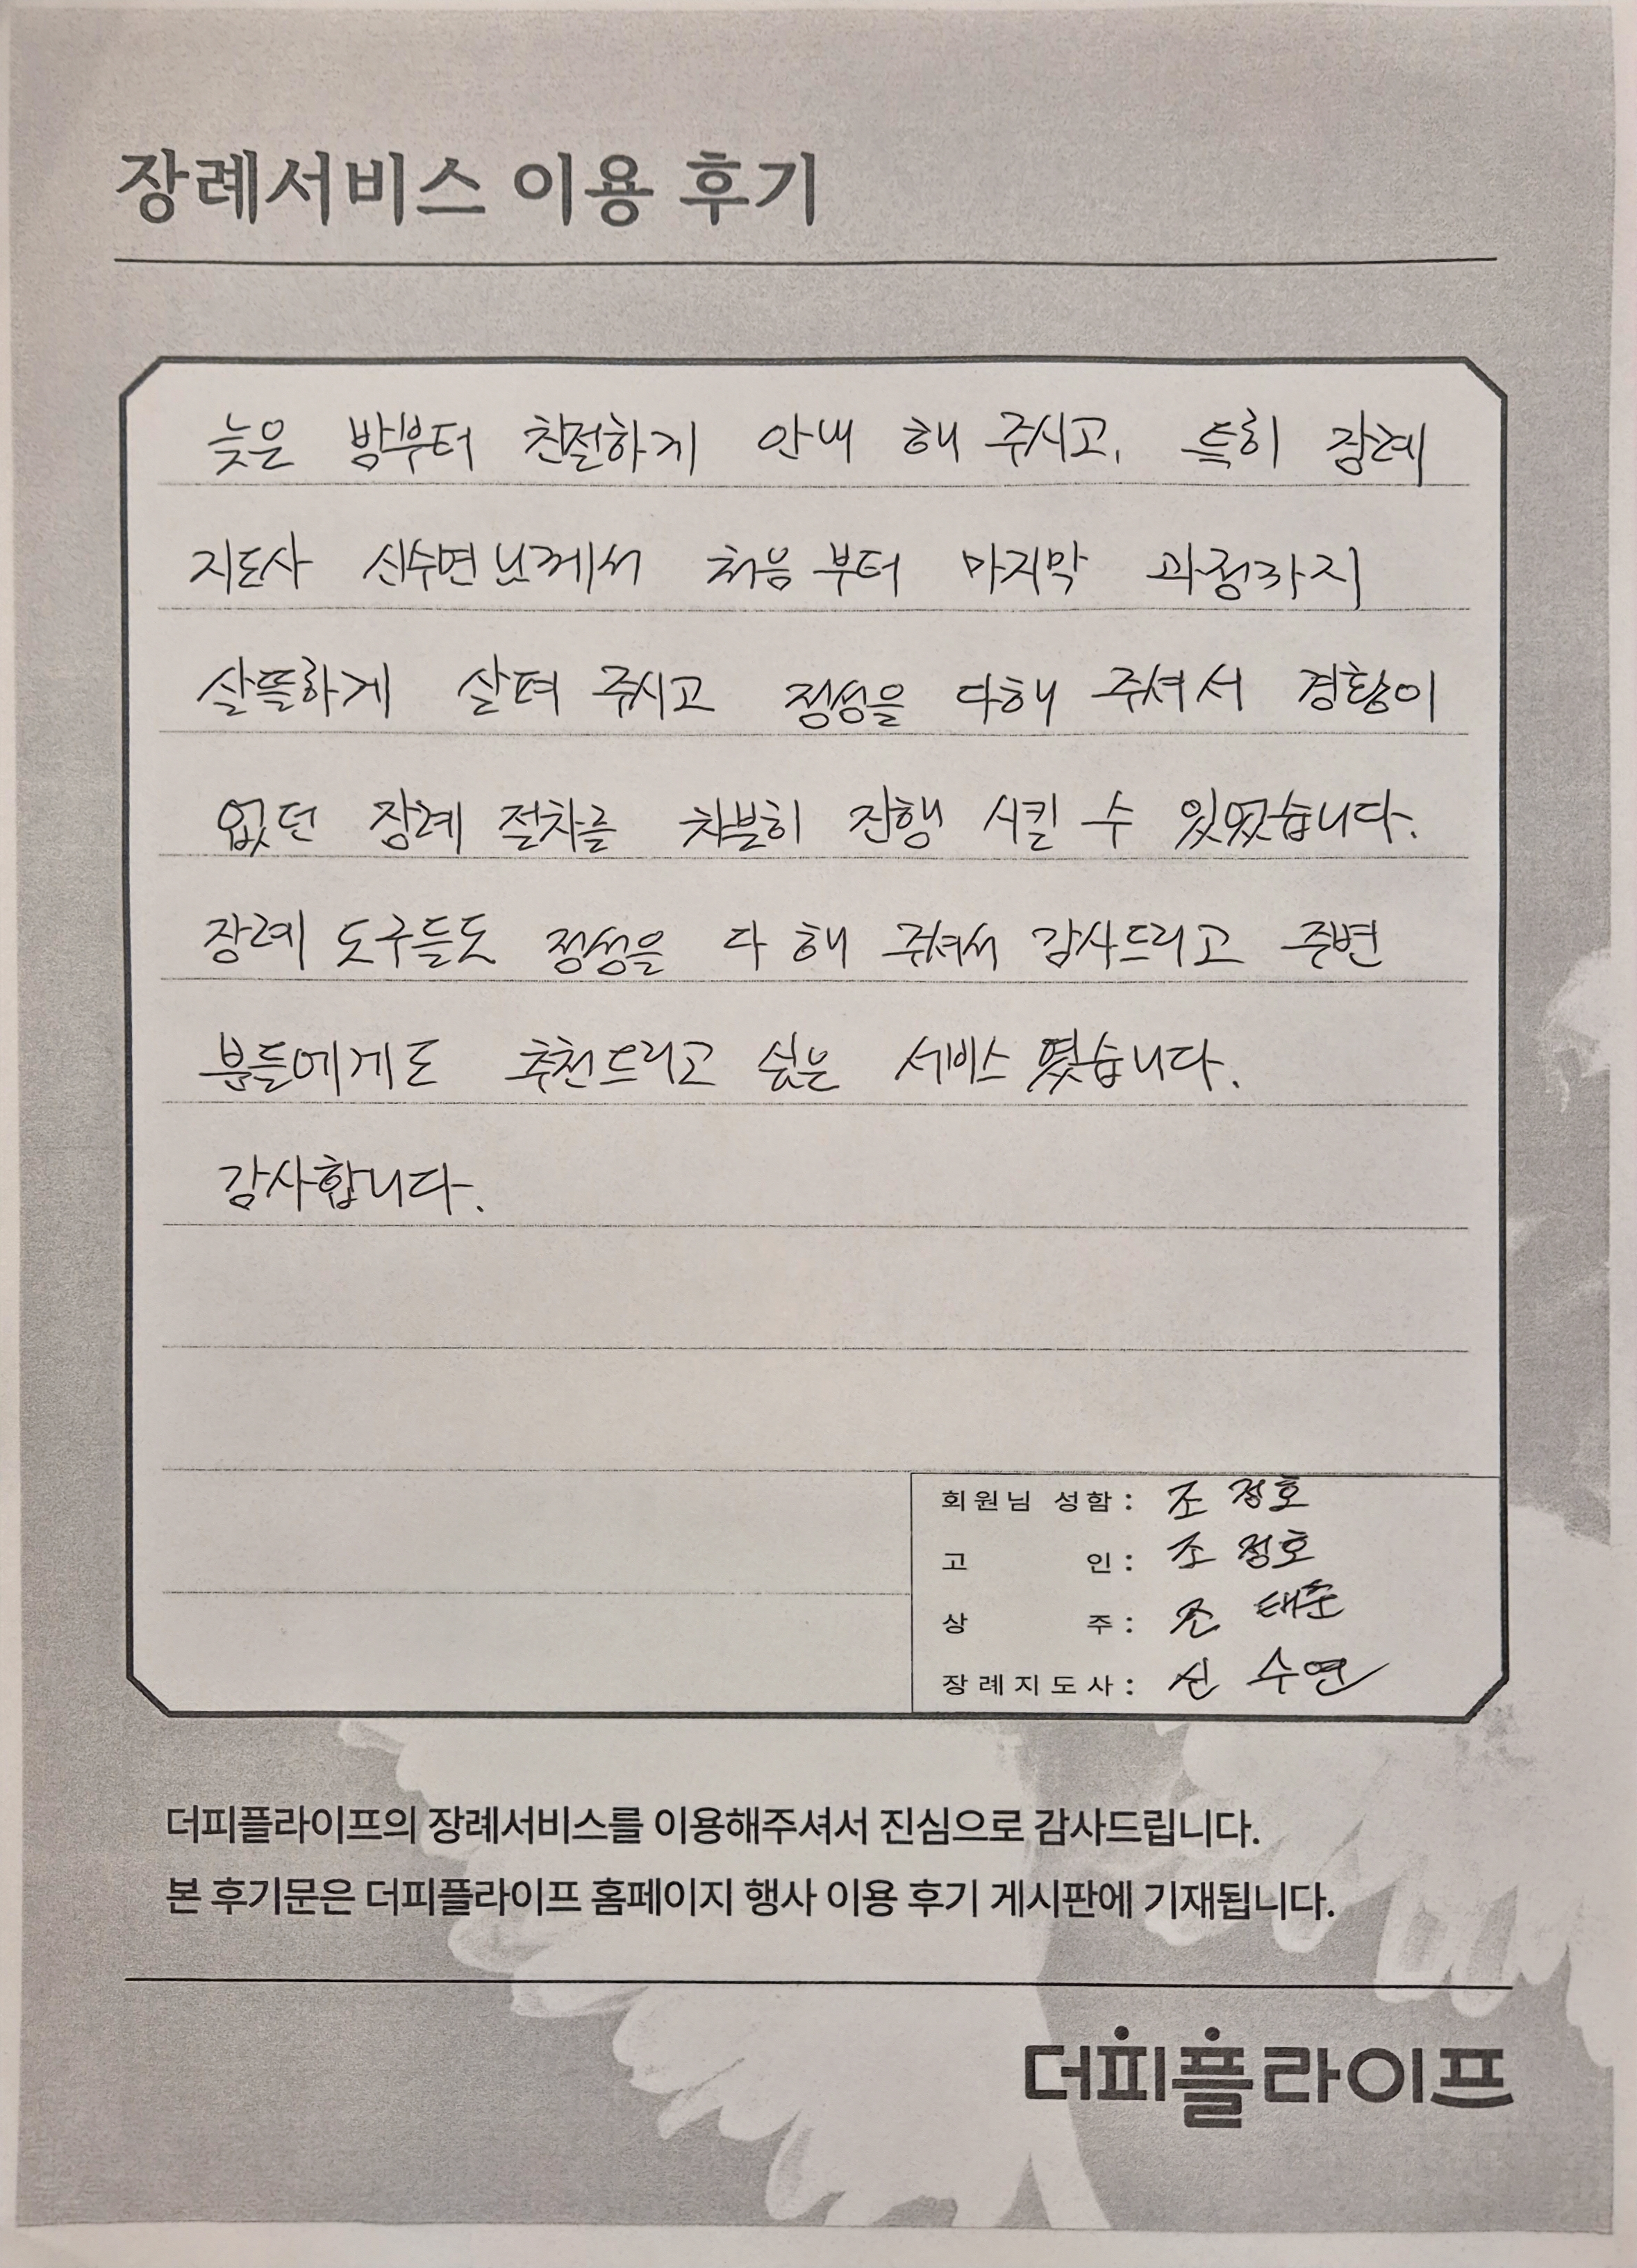 장례서비스 이용 후기
늦은 밤부터 친절하게 안내 해 주시고, 특히 장례
지도사 신수연님께서 처음 부터 마지막 과정까지
살뜰하게 살펴 주시고 정성을 다해 주셔서 경황이
없던 장례 절차를 차분히 진행 시킬 수 있었습니다.
장례 도구들도 정성을 다 해 주셔서 감사드리고 주변
분들에게도 추천드리고 싶은 서비스 였습니다.
감사합니다.
회원님 성함 : 조 정호
고 인 : 조 정호
상 주 : 조 태준
장례지도사 : 신 수연
더피플라이프의 장례서비스를 이용해주셔서 진심으로 감사드립니다.
본 후기문은 더피플라이프 홈페이지 행사 이용 후기 게시판에 기재됩니다.
더피플라이프